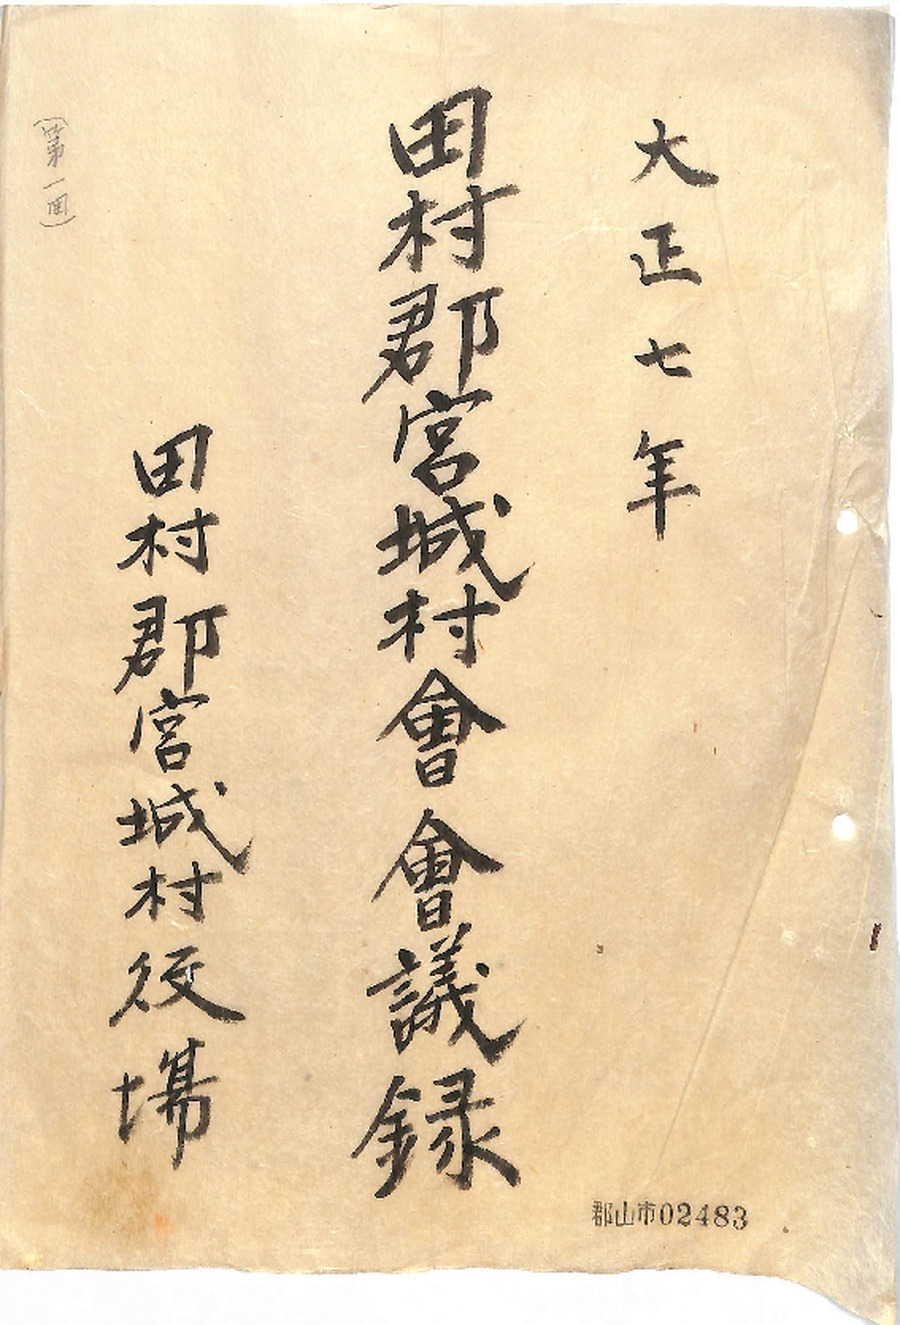 大正七年
田村郡宮城村會會議録
田村郡宮城村役場
(第一回)
郡山市02483